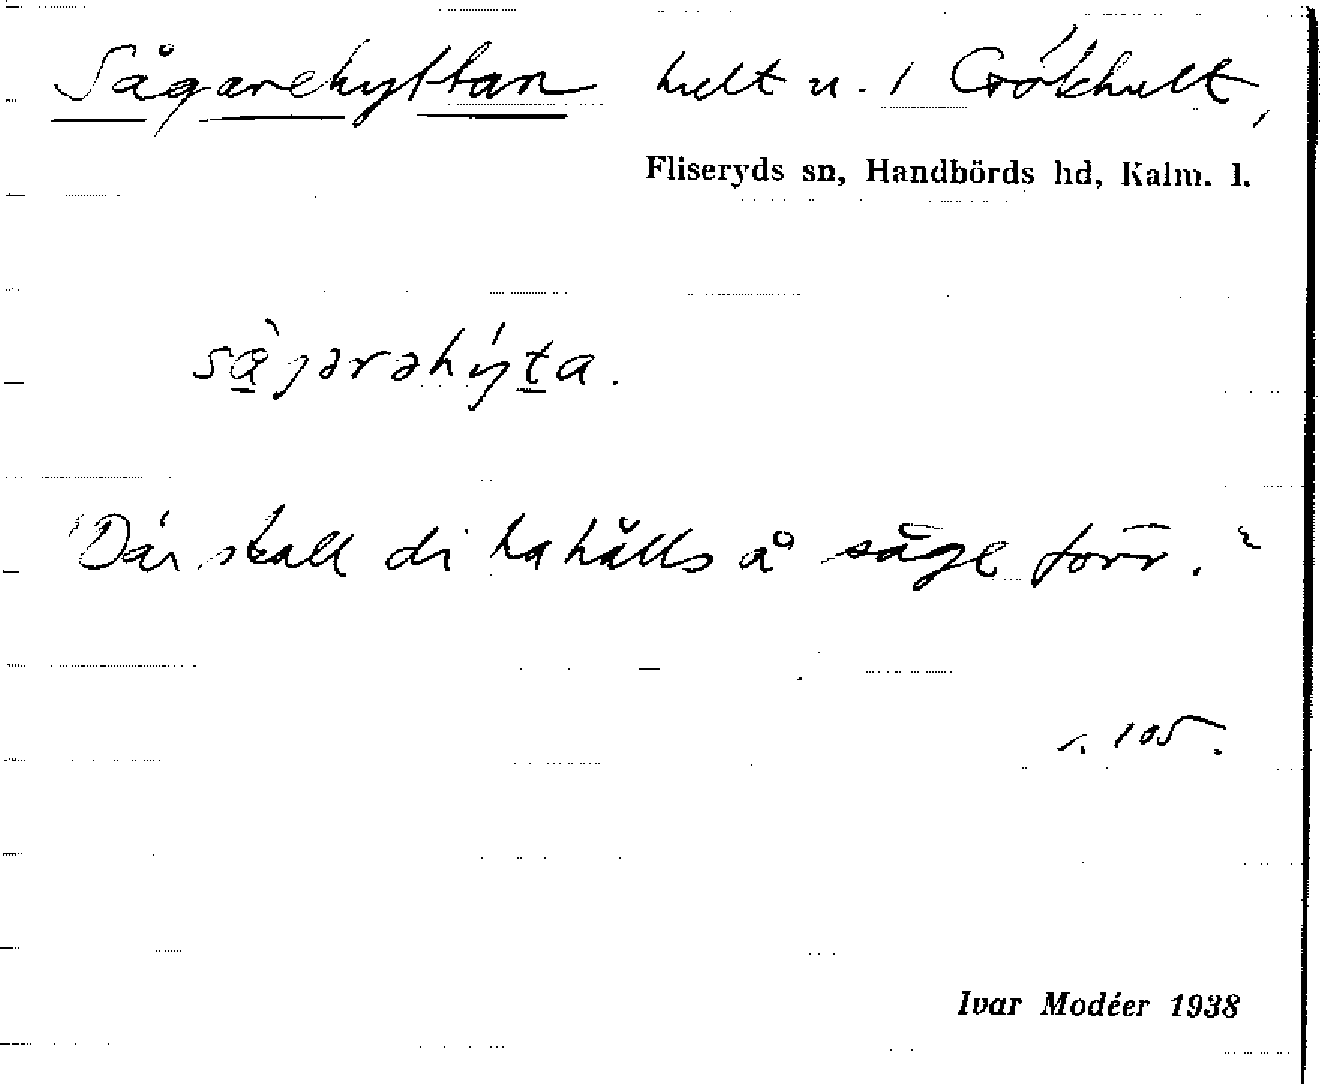 Sågarehyttan helt n. i Grökhult,
Fliseryds sn, Handbörds hd, Kalm. l.
sàgərəhýta.
"Där skall di ha hålls å såge förr."
s. 105.
Ivar Modéer 1938